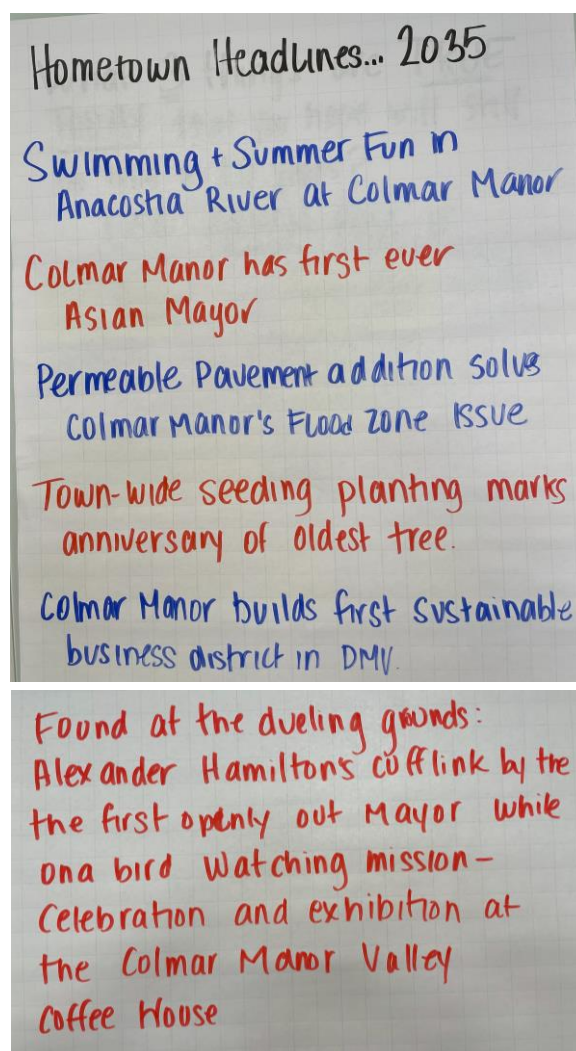 Hometown Headlines... 2035
Swimming + Summer Fun in
Anacostia River at Colmar Manor
Colmar Manor has first ever
Asian Mayor
Permeable Pavement addition solves
Colmar Manor's Flood Zone Issue
Town-wide seeding planting marks
anniversary of oldest tree.
Colmar Manor builds first sustainable
business district in DMV.
Found at the dueling grounds:
Alexander Hamilton's cufflink by the
the first openly out Mayor while
on a bird watching mission-
Celebration and exhibition at
the Colmar Manor Valley
Coffee House